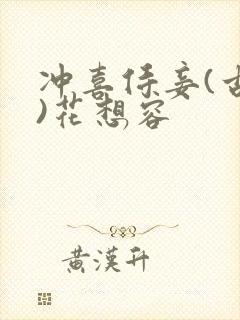 冲喜侍妾(古
)花想容
黄漢升